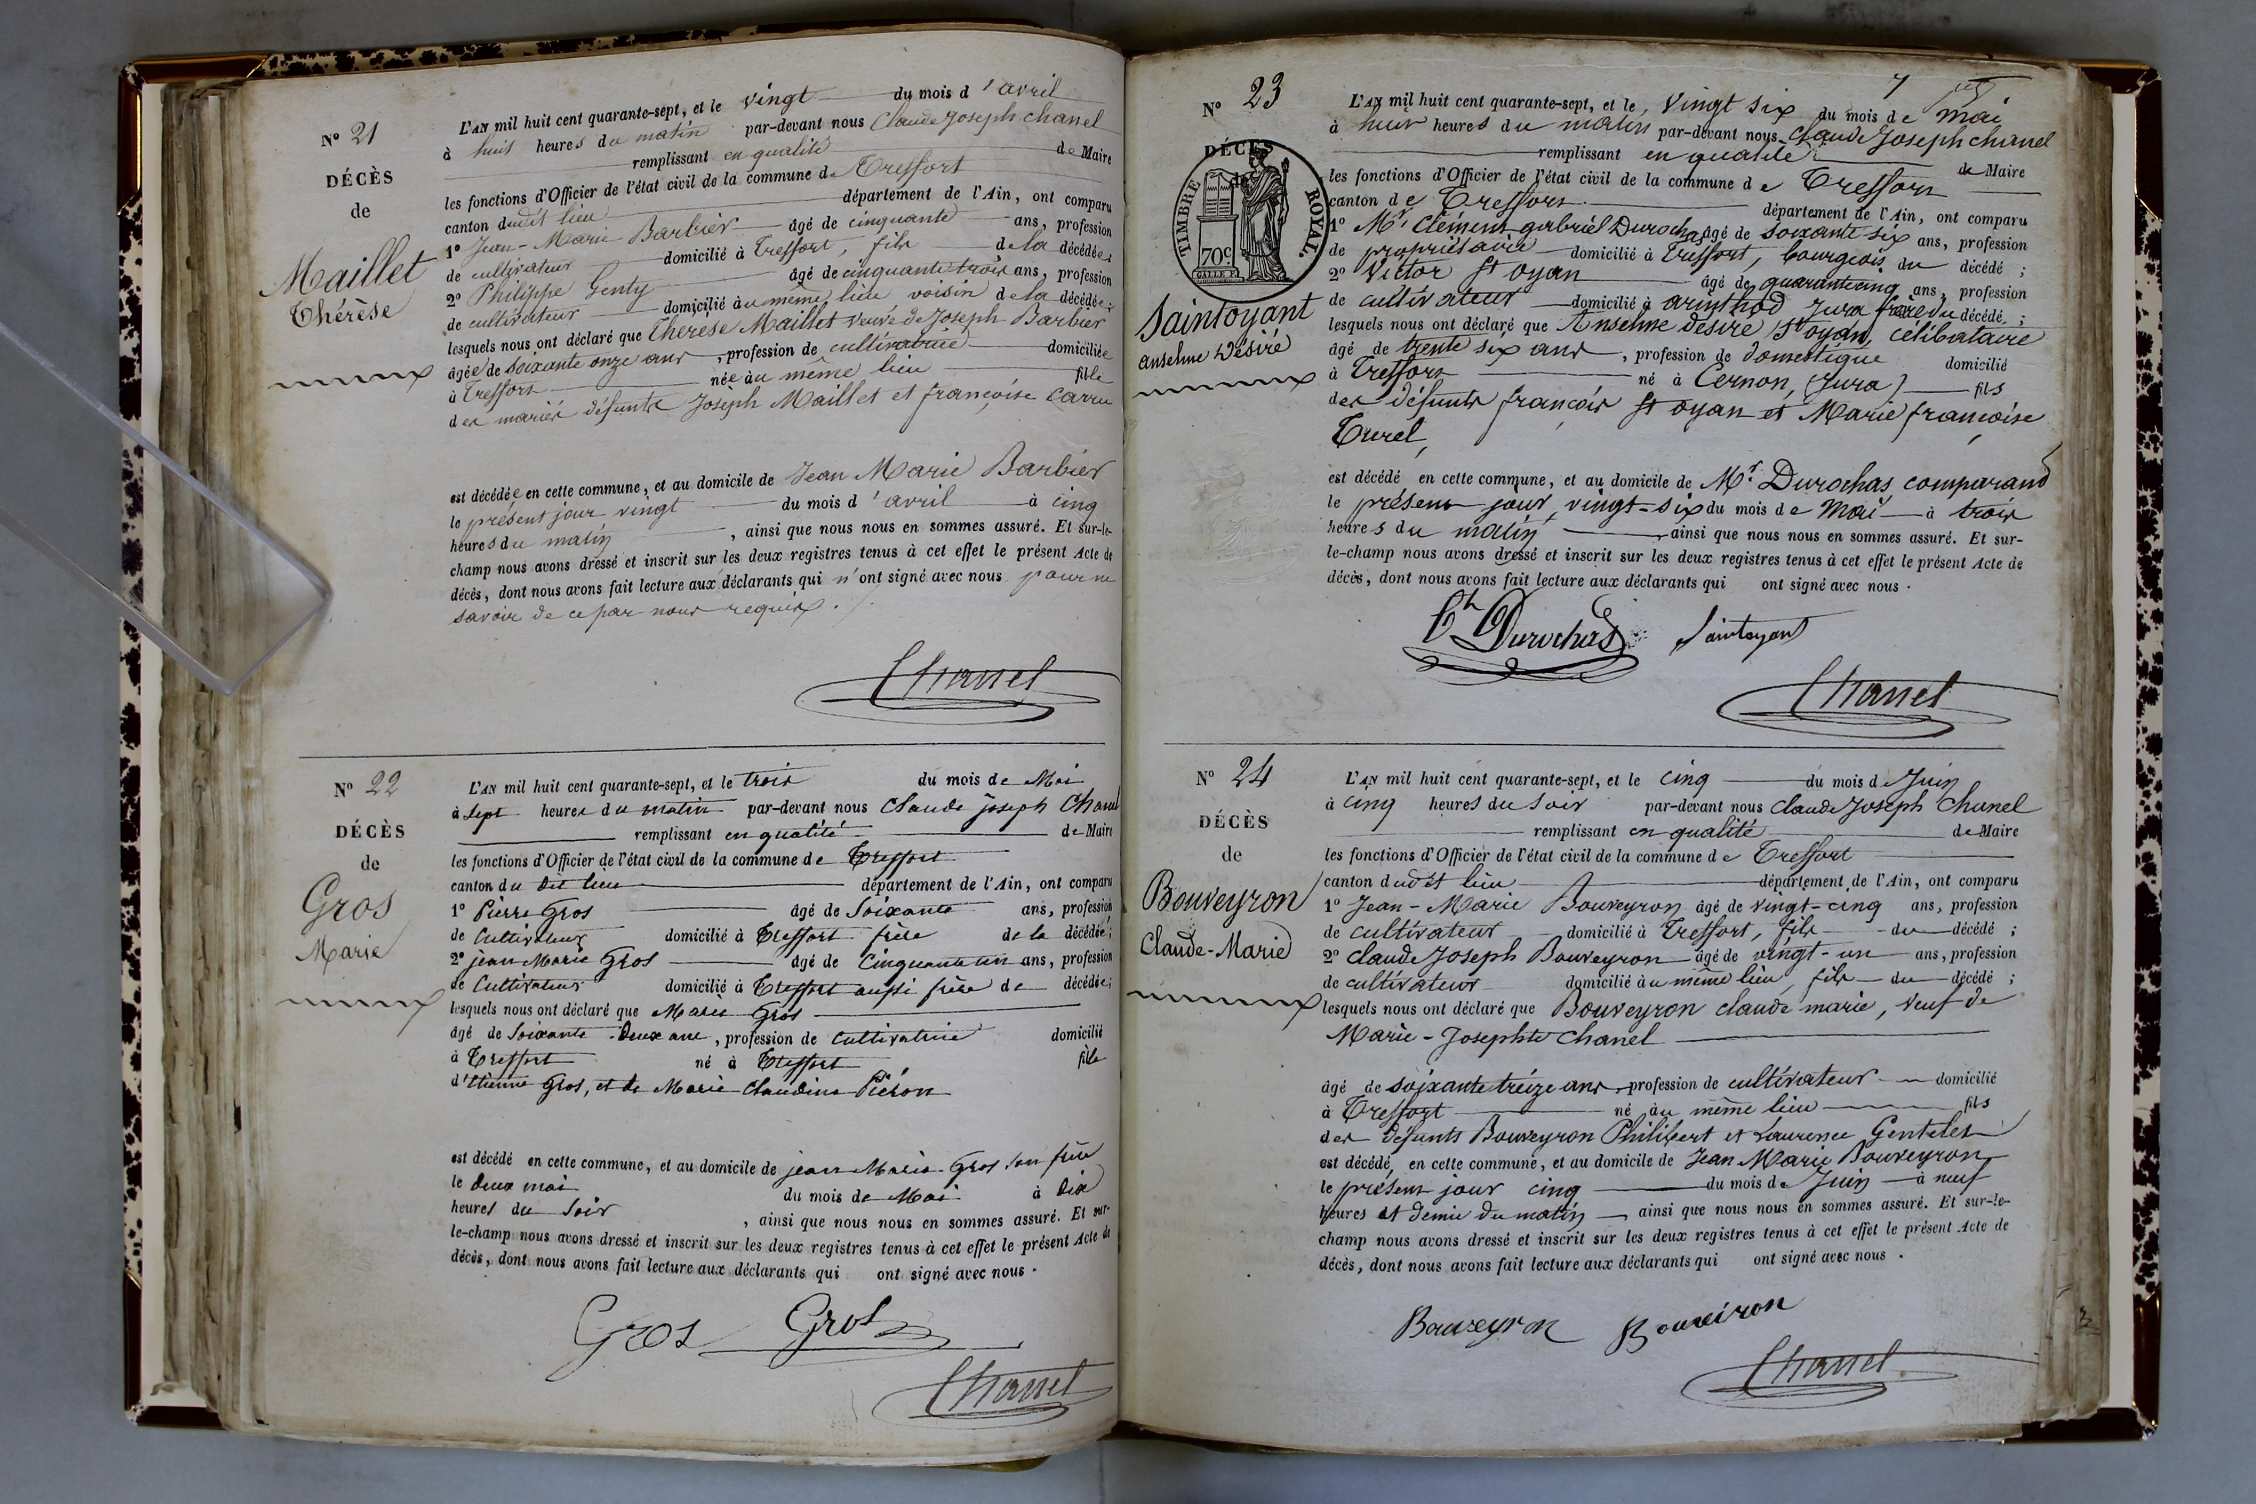 N° 21
DÉCÈS
de
Maillet
Thérèse
L'AN mil huit cent quarante-sept, et le vingt du mois d'avril
à huit heures du matin par-devant nous Claude Joseph chanel
remplissant en qualité de Maire
les fonctions d'Officier de l'état civil de la commune de Treffort
canton dudit lieu département de l'Ain, ont comparu
1° Jean-Marie Barbier âgé de cinquante ans, profession
de cultivateur domicilié à Treffort, fils de la décédée;
2° Philippe Genty âgé de cinquante trois ans, profession
de cultivateur domicilié au même lieu voisin de la décédée;
lesquels nous ont déclaré que Thérèse Maillet veuve de Joseph Barbier
âgée de soixante onze ans, profession de cultivatrice domiciliée
à Treffort née au même lieu fille
des mariés défunts Joseph Maillet et françoise Carru
est décédée en cette commune, et au domicile de Jean Marie Barbier
le présent jour vingt du mois d'avril à cinq
heures du matin, ainsi que nous nous en sommes assuré. Et sur-le-
champ nous avons dressé et inscrit sur les deux registres tenus à cet effet le présent Acte de
décès, dont nous avons fait lecture aux déclarants qui n'ont signé avec nous pour ne
savoir de ce par nous requis.
Chanel
N° 22
DÉCÈS
de
Gros
Marie
L'AN mil huit cent quarante-sept, et le trois du mois de Mai
à sept heures du matin par-devant nous Claude joseph Chanel
remplissant en qualité de Maire
les fonctions d'Officier de l'état civil de la commune de Treffort
canton du dit lieu département de l'Ain, ont comparu
1° Pierre Gros âgé de Soixante ans, profession
de Cultivateur domicilié à Treffort frère de la décédée;
2° jean Marie Gros âgé de Cinquante un ans, profession
de Cultivateur domicilié à Treffort aussi frère de décédée;
lesquels nous ont déclaré que Marie Gros
âgé de Soixante-deux ans, profession de Cultivatrice domicilié
à Treffort né à Treffort fille
d'Etienne Gros, et de Marie Claudine Piéron
est décédé en cette commune, et au domicile de jean Marie Gros son frère
le deux mai du mois de Mai à dix
heures du Soir, ainsi que nous nous en sommes assuré. Et sur-
le-champ nous avons dressé et inscrit sur les deux registres tenus à cet effet le présent Acte de
décès, dont nous avons fait lecture aux déclarants qui ont signé avec nous.
Gros Gros
Chanel
7
N° 23
DÉCÈS
TIMBRE ROYAL.
70c.
Saintoyant
anselme Désiré
L'AN mil huit cent quarante-sept, et le vingt six du mois de mai
à huit heures du matin par-devant nous Claude Joseph chanel
remplissant en qualité de Maire
les fonctions d'Officier de l'état civil de la commune de Treffort
canton de Treffort département de l'Ain, ont comparu
1° Mr Clément gabriel Durochas âgé de soixante six ans, profession
de propriétaire domicilié à Treffort, bourgeois du décédé;
2° Victor St oyan âgé de quarante cinq ans, profession
de cultivateur domicilié à arinthod Jura frère du décédé;
lesquels nous ont déclaré que Anselme désiré St oyan, célibataire
âgé de trente six ans, profession de domestique domicilié
à Treffort né à Cernon, (Jura) fils
des défunts françois St oyan et Marie françoise
Turel,
est décédé en cette commune, et au domicile de Mr. Durochas comparant
le présent jour vingt-six du mois de Mai à trois
heures du matin ainsi que nous nous en sommes assuré. Et sur-
le-champ nous avons dressé et inscrit sur les deux registres tenus à cet effet le présent Acte de
décès, dont nous avons fait lecture aux déclarants qui ont signé avec nous.
Durochas Saintoyant
Chanel
N° 24
DÉCÈS
de
Bouveyron
Claude-Marie
L'AN mil huit cent quarante-sept, et le cinq du mois de Juin
à cinq heures du soir par-devant nous Claude Joseph Chanel
remplissant en qualité de Maire
les fonctions d'Officier de l'état civil de la commune de Treffort
canton dudit lieu département de l'Ain, ont comparu
1° Jean-Marie Bouveyron âgé de vingt-cinq ans, profession
de cultivateur domicilié à Treffort, fils du décédé;
2° claude Joseph Bouveyron âgé de vingt-un ans, profession
de cultivateur domicilié au même lieu, fils du décédé;
lesquels nous ont déclaré que Bouveyron claude marie, veuf de
Marie-Josephte Chanel
âgé de soixante treize ans, profession de cultivateur domicilié
à Treffort né au même lieu fils
des défunts Bouveyron Philibert et Laurence Gentelet
est décédé en cette commune, et au domicile de Jean Marie Bouveyron
le présent jour cinq du mois de Juin à neuf
heures et demie du matin, ainsi que nous nous en sommes assuré. Et sur-le-
champ nous avons dressé et inscrit sur les deux registres tenus à cet effet le présent Acte de
décès, dont nous avons fait lecture aux déclarants qui ont signé avec nous.
Bouveyron Bouveiron
Chanel